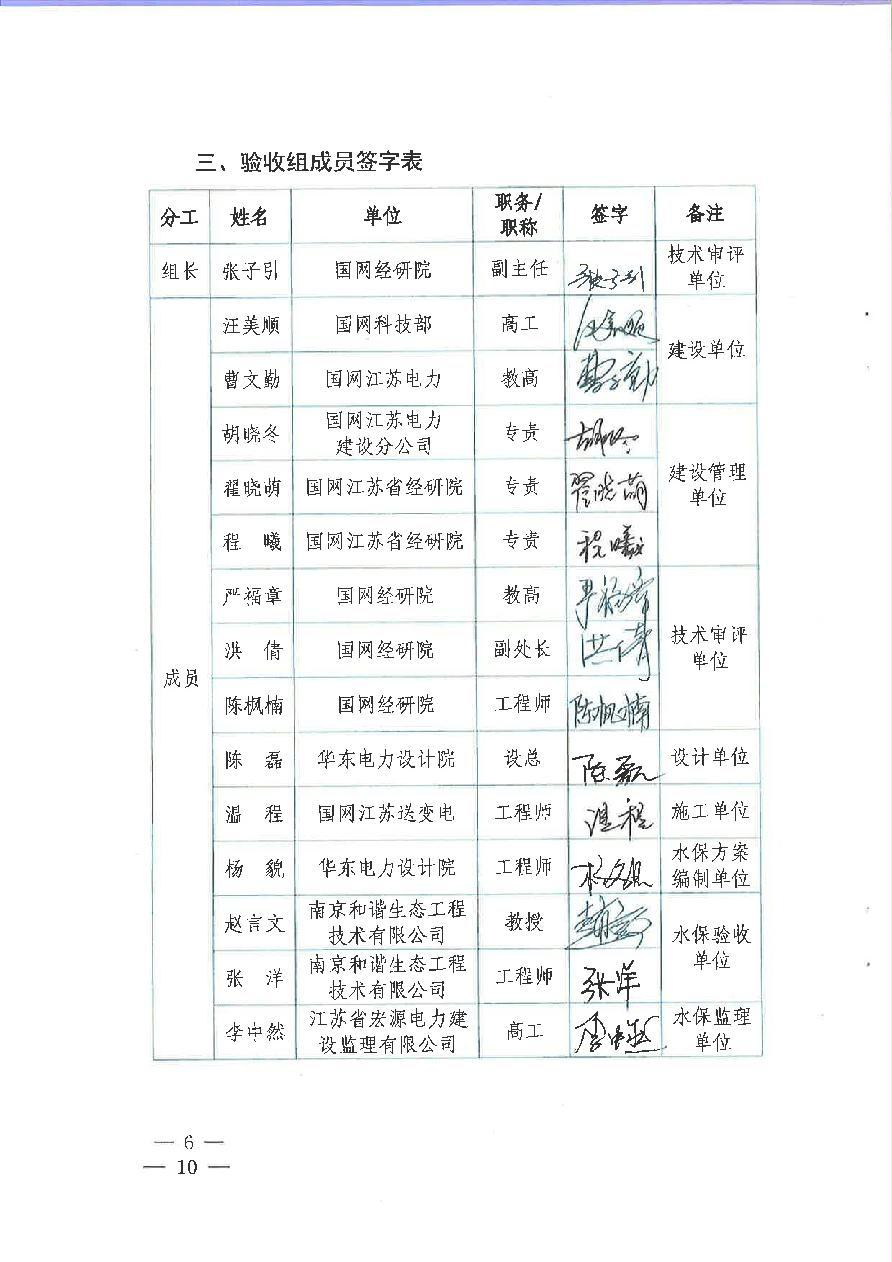 三、验收组成员签字表
分工 姓名 单位 职务/ 签字 备注
职称
组长 张子引 国网经研院 副主任 张子引 技术审评
单位
成员
汪美顺 国网科技部 高工 建设单位
曹文勤 国网江苏电力 教高 曹文勤
胡晓冬 国网江苏电力 专责 建设管理
建设分公司 单位
翟晓萌 国网江苏省经研院 专责 翟晓萌
程 曦 国网江苏省经研院 专责 程曦
严福章 国网经研院 教高 严福章 技术审评
单位
洪 倩 国网经研院 副处长 洪倩
陈枫楠 国网经研院 工程师 陈枫楠
陈 磊 华东电力设计院 设总 陈磊 设计单位
温 程 国网江苏送变电 工程师 温程 施工单位
杨 貌 华东电力设计院 工程师 水保方案
编制单位
赵言文 南京和谐生态工程 教授 水保验收
技术有限公司 单位
张 洋 南京和谐生态工程 工程师 张洋
技术有限公司
李中然 江苏省宏源电力建 高工 李中然 水保监理
设监理有限公司 单位
— 6 —
— 10 —